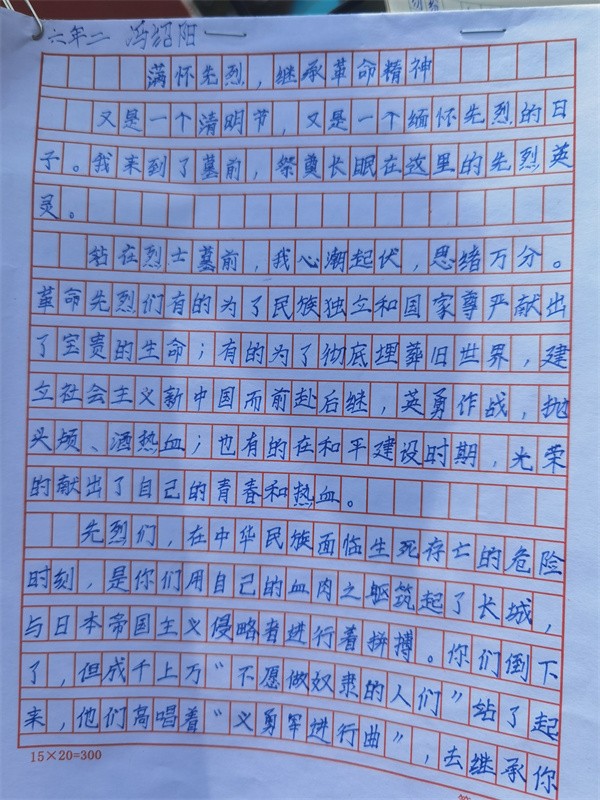 六年二 冯绍阳
满怀先烈，继承革命精神
又是一个清明节，又是一个缅怀先烈的日
子。我来到了墓前，祭奠长眠在这里的先烈英
灵。
站在烈士墓前，我心潮起伏，思绪万分。
革命先烈们有的为了民族独立和国家尊严献出
了宝贵的生命；有的为了彻底埋葬旧世界，建
立社会主义新中国而前赴后继，英勇作战，抛
头颅、洒热血；也有的在和平建设时期，光荣
的献出了自己的青春和热血。
先烈们，在中华民族面临生死存亡的危险
时刻，是你们用自己的血肉之躯筑起了长城，
与日本帝国主义侵略者进行着拼搏。你们倒下
了，但成千上万“不愿做奴隶的人们”站了起
来，他们高唱着“义勇军进行曲”，去继承你
15×20=300